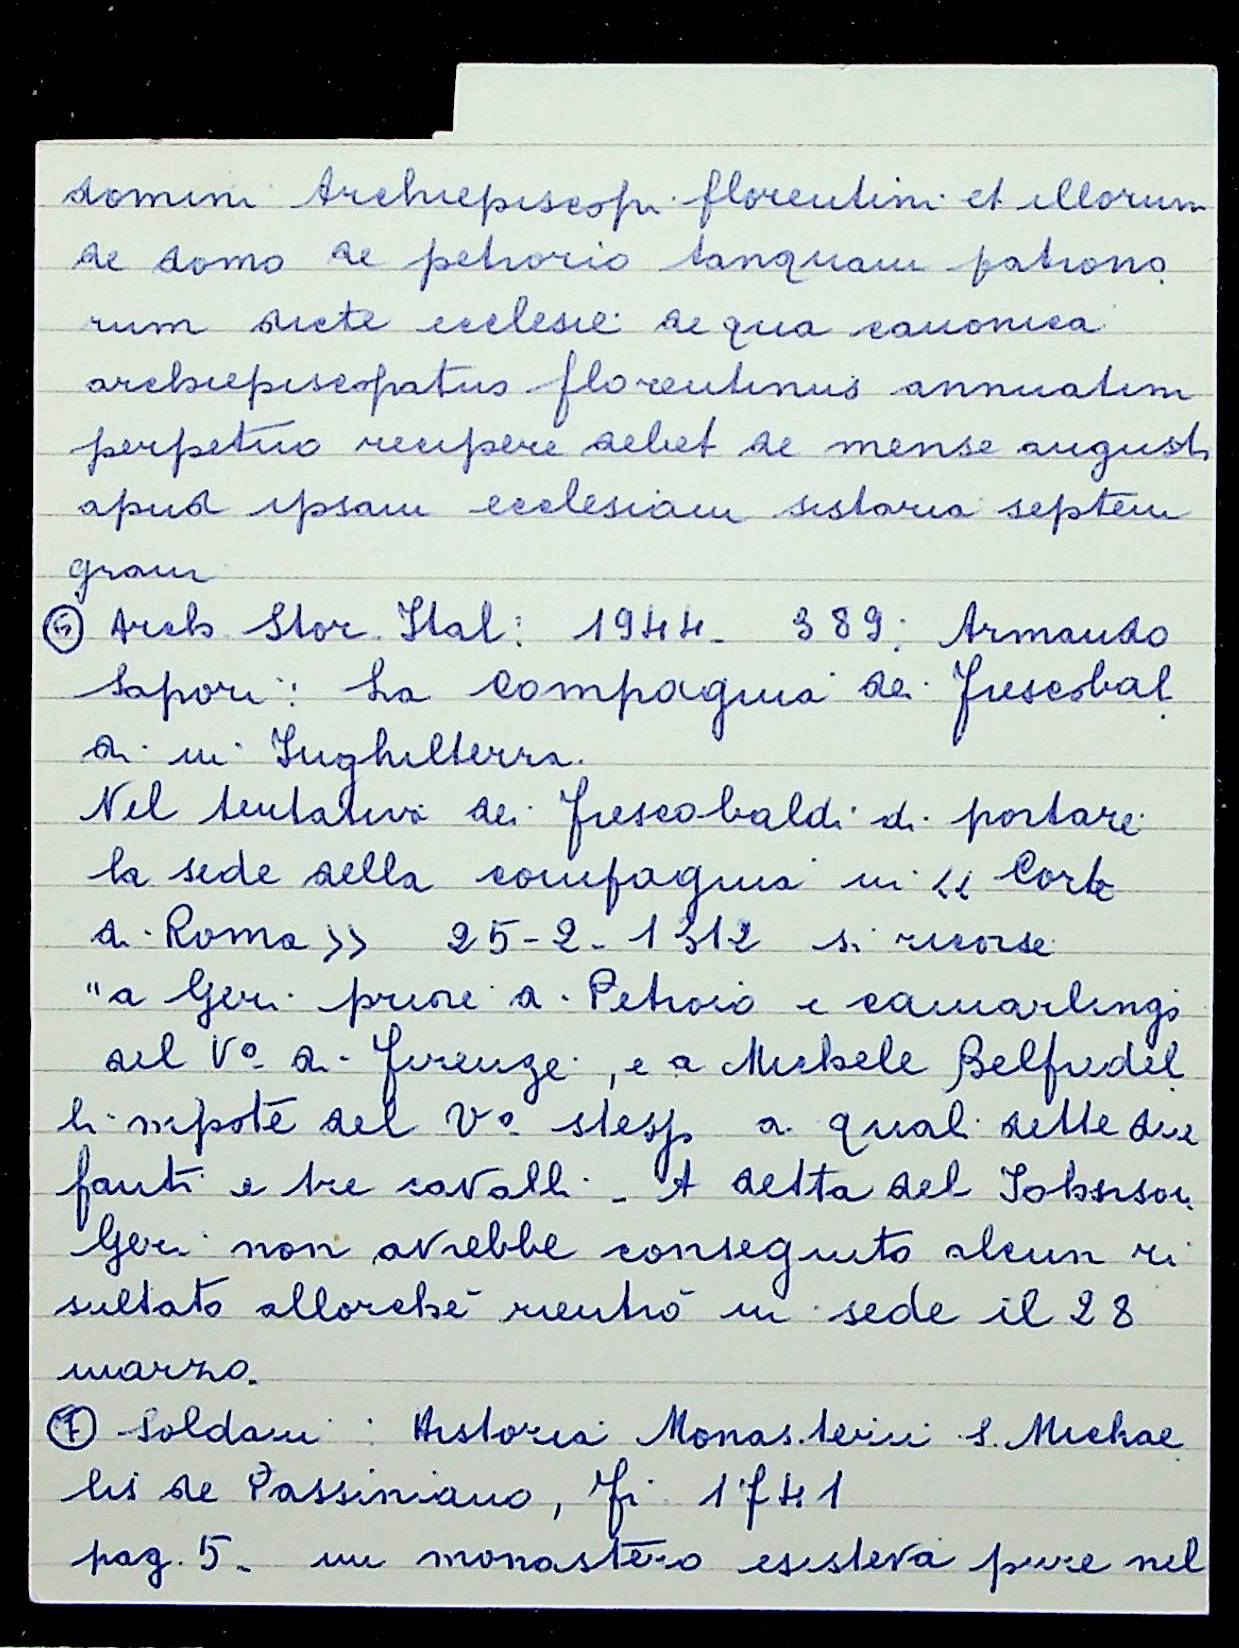 domini Archiepiscopi florentini et illorum
de domo de petrorio tanquam patrono
rum dicte ecclesie de qua canonica
archiepiscopatus florentinus annuatim
perpetuo recipere debet de mense augusti
apud ipsam ecclesiam sistaria septem
grani
⑥ Arch. Stor. Ital: 1944 - 389: Armando
Sapori: La Compagnia dei Frescobal
di in Inghilterra.
Nel tentativo dei Frescobaldi di portare
la sede della compagnia in << Corte
di Roma >> 25-2-1312 si ricorse
"a Geri priore di Petroio e camarlingo
del Vº di Firenze, e a Michele Belfredel
li nipote del Vº stesso ai quali dette due
fanti e tre cavalli - A detta del
Geri non avrebbe conseguito alcun ri
sultato allorché rientrò in sede il 28
marzo.
⑦ Soldani: Historia Monasterii S. Michae
lis de Passiniano, Fi. 1741
pag. 5 - un monastero esisteva pure nel